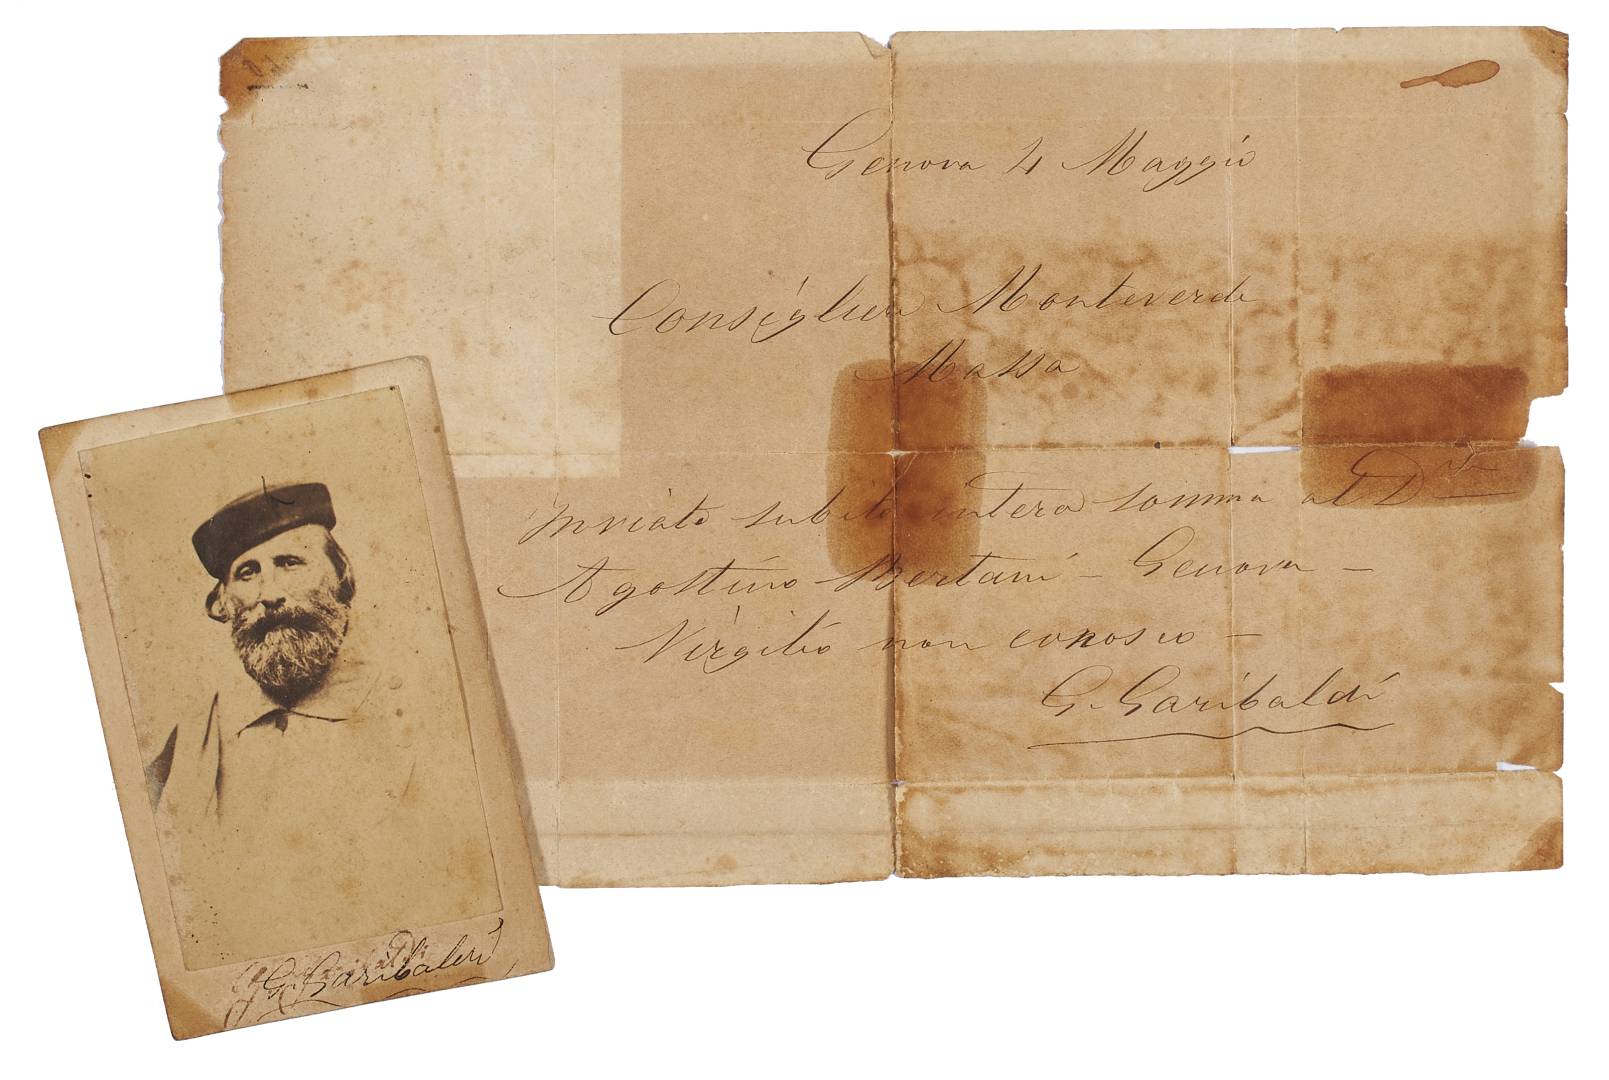 Genova 4 Maggio
Consigliere Monteverde
Massa
Inviate subito intera somma al Dre
Agostino Bertani – Genova –
Virgilio non conosco –
G. Garibaldi
G. Garibaldi